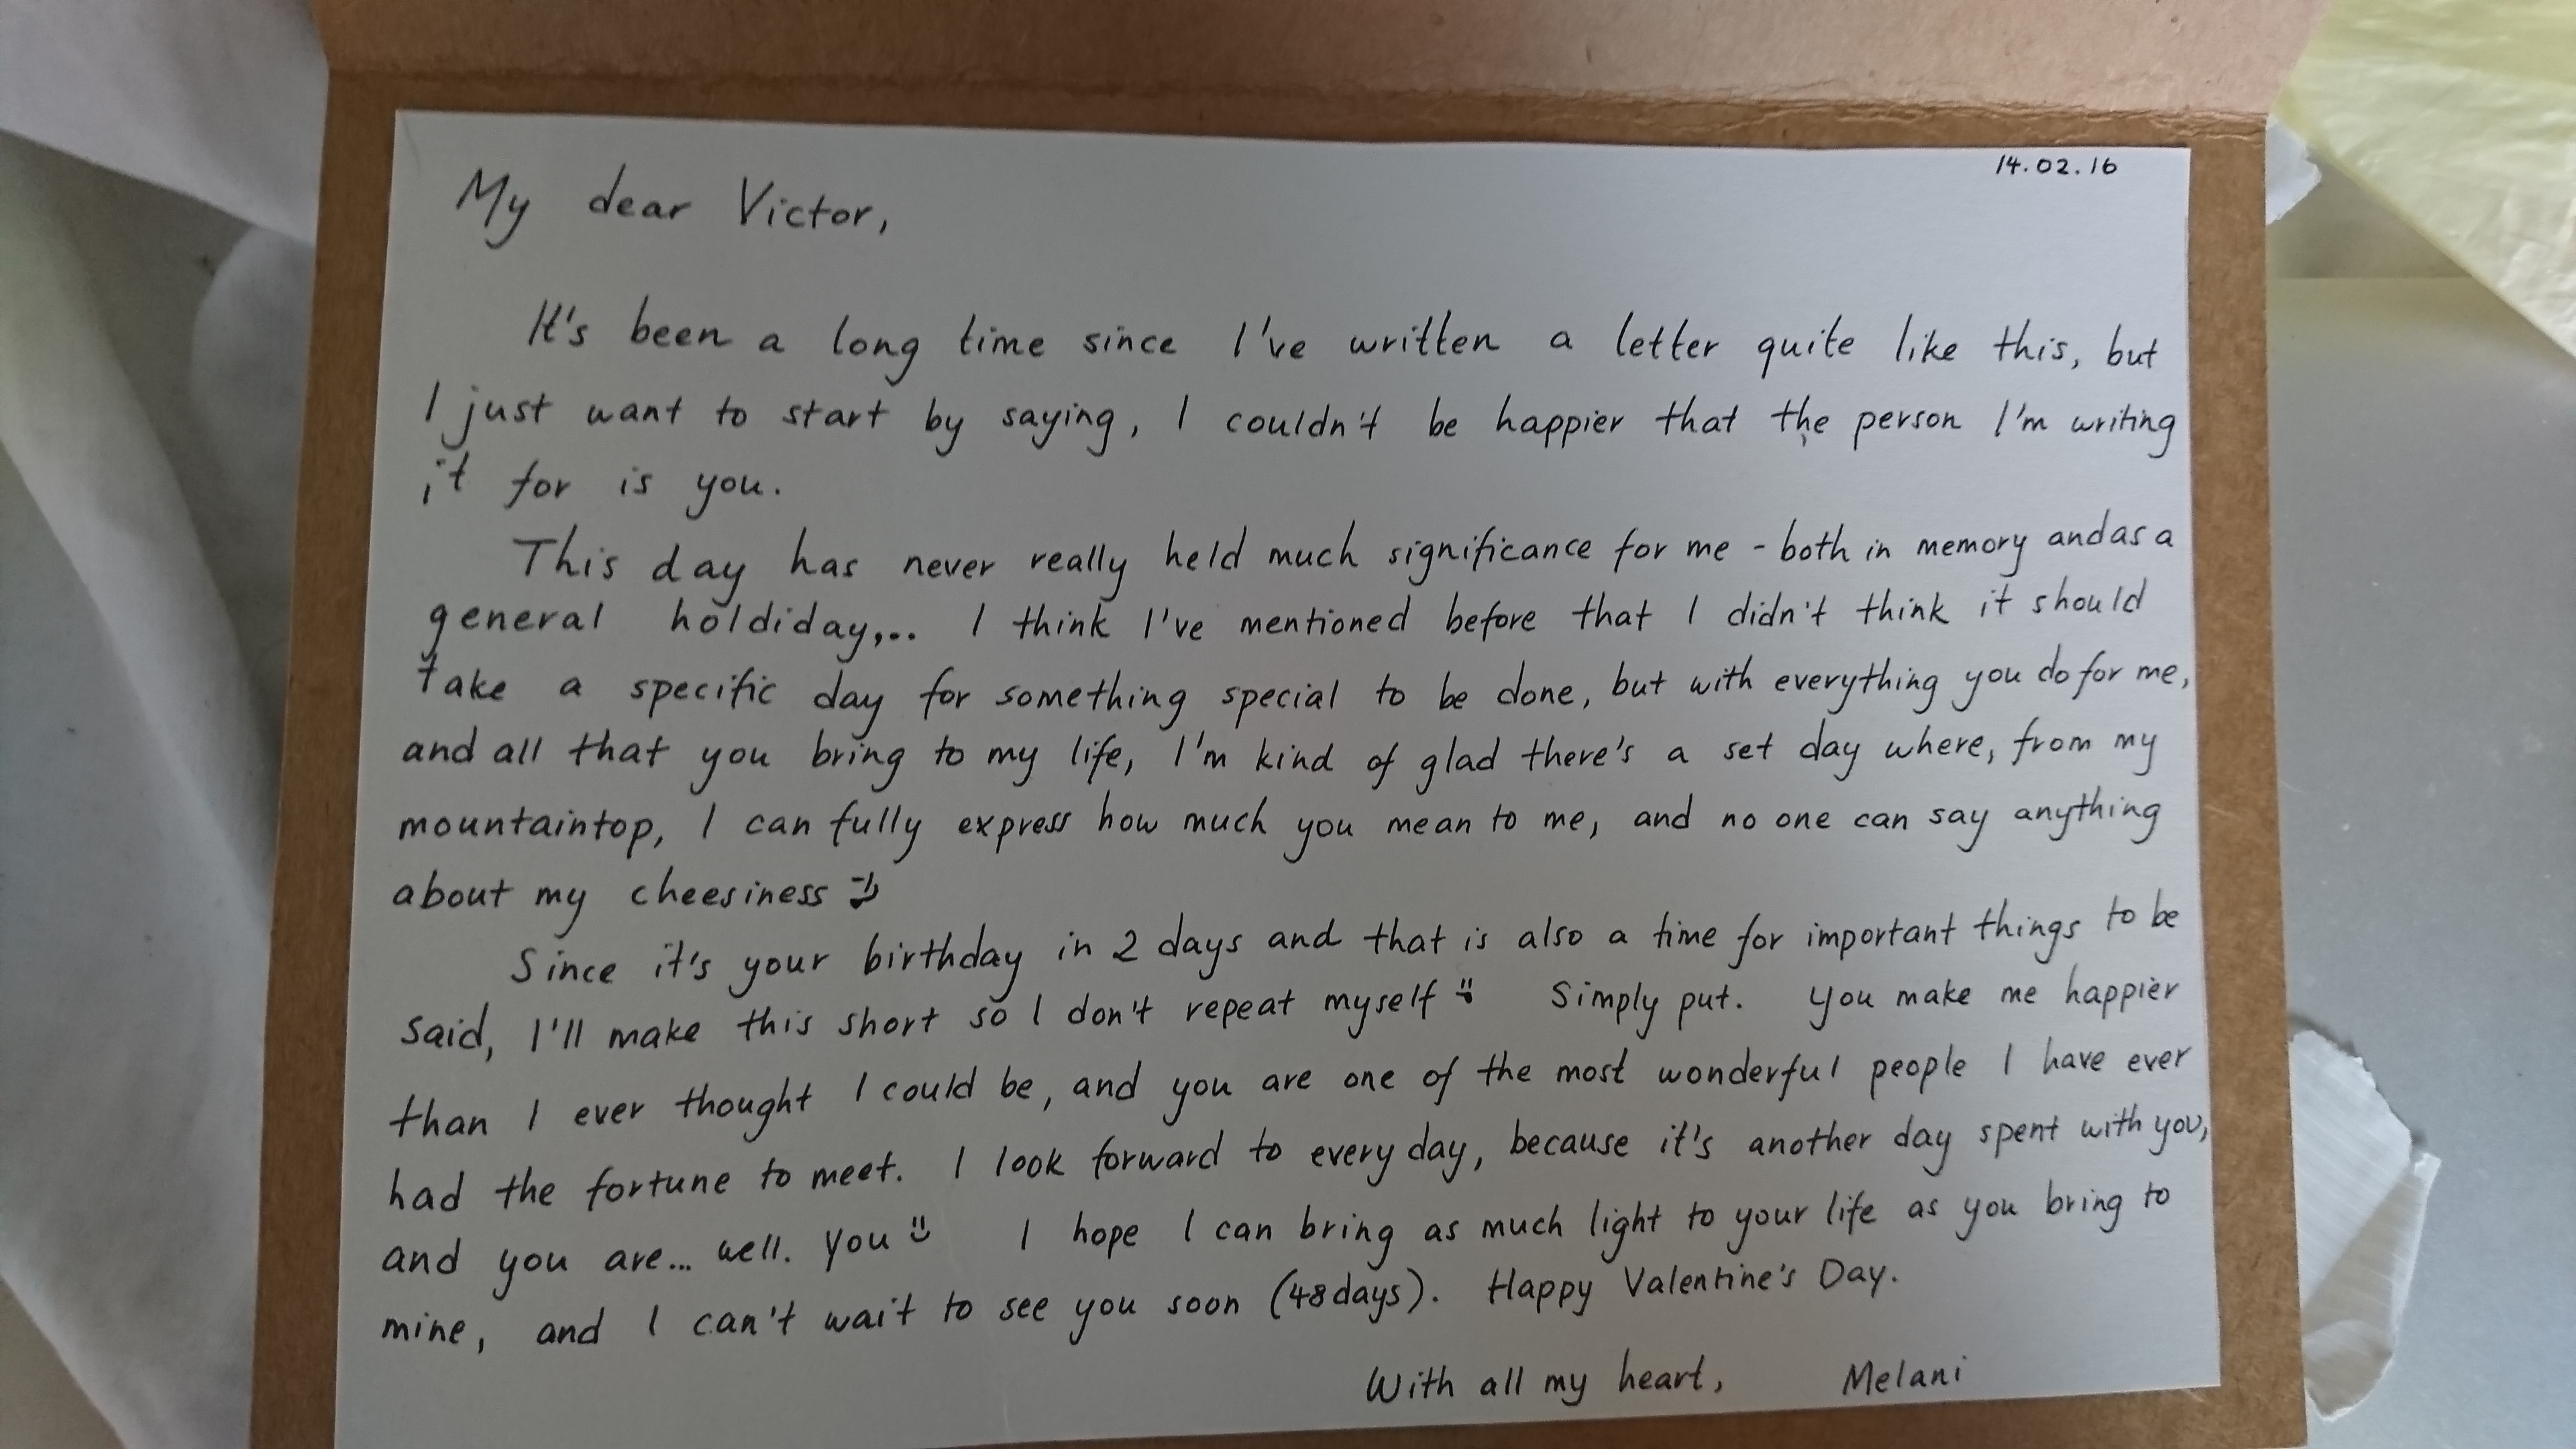 14.02.16
My dear Victor,
It's been a long time since I've written a letter quite like this, but
I just want to start by saying, I couldn't be happier that the person I'm writing
it for is you.
This day has never really held much significance for me - both in memory and as a
general holdiday,.. I think I've mentioned before that I didn't think it should
take a specific day for something special to be done, but with everything you do for me,
and all that you bring to my life, I'm kind of glad there's a set day where, from my
mountaintop, I can fully express how much you mean to me, and no one can say anything
about my cheesiness =)
Since it's your birthday in 2 days and that is also a time for important things to be
said, I'll make this short so I don't repeat myself Simply put. You make me happier
than I ever thought I could be, and you are one of the most wonderful people I have ever
had the fortune to meet. I look forward to every day, because it's another day spent with you,
and you are... well. You I hope I can bring as much light to your life as you bring to
mine, and I can't wait to see you soon (48 days). Happy Valentine's Day.
With all my heart, Melani